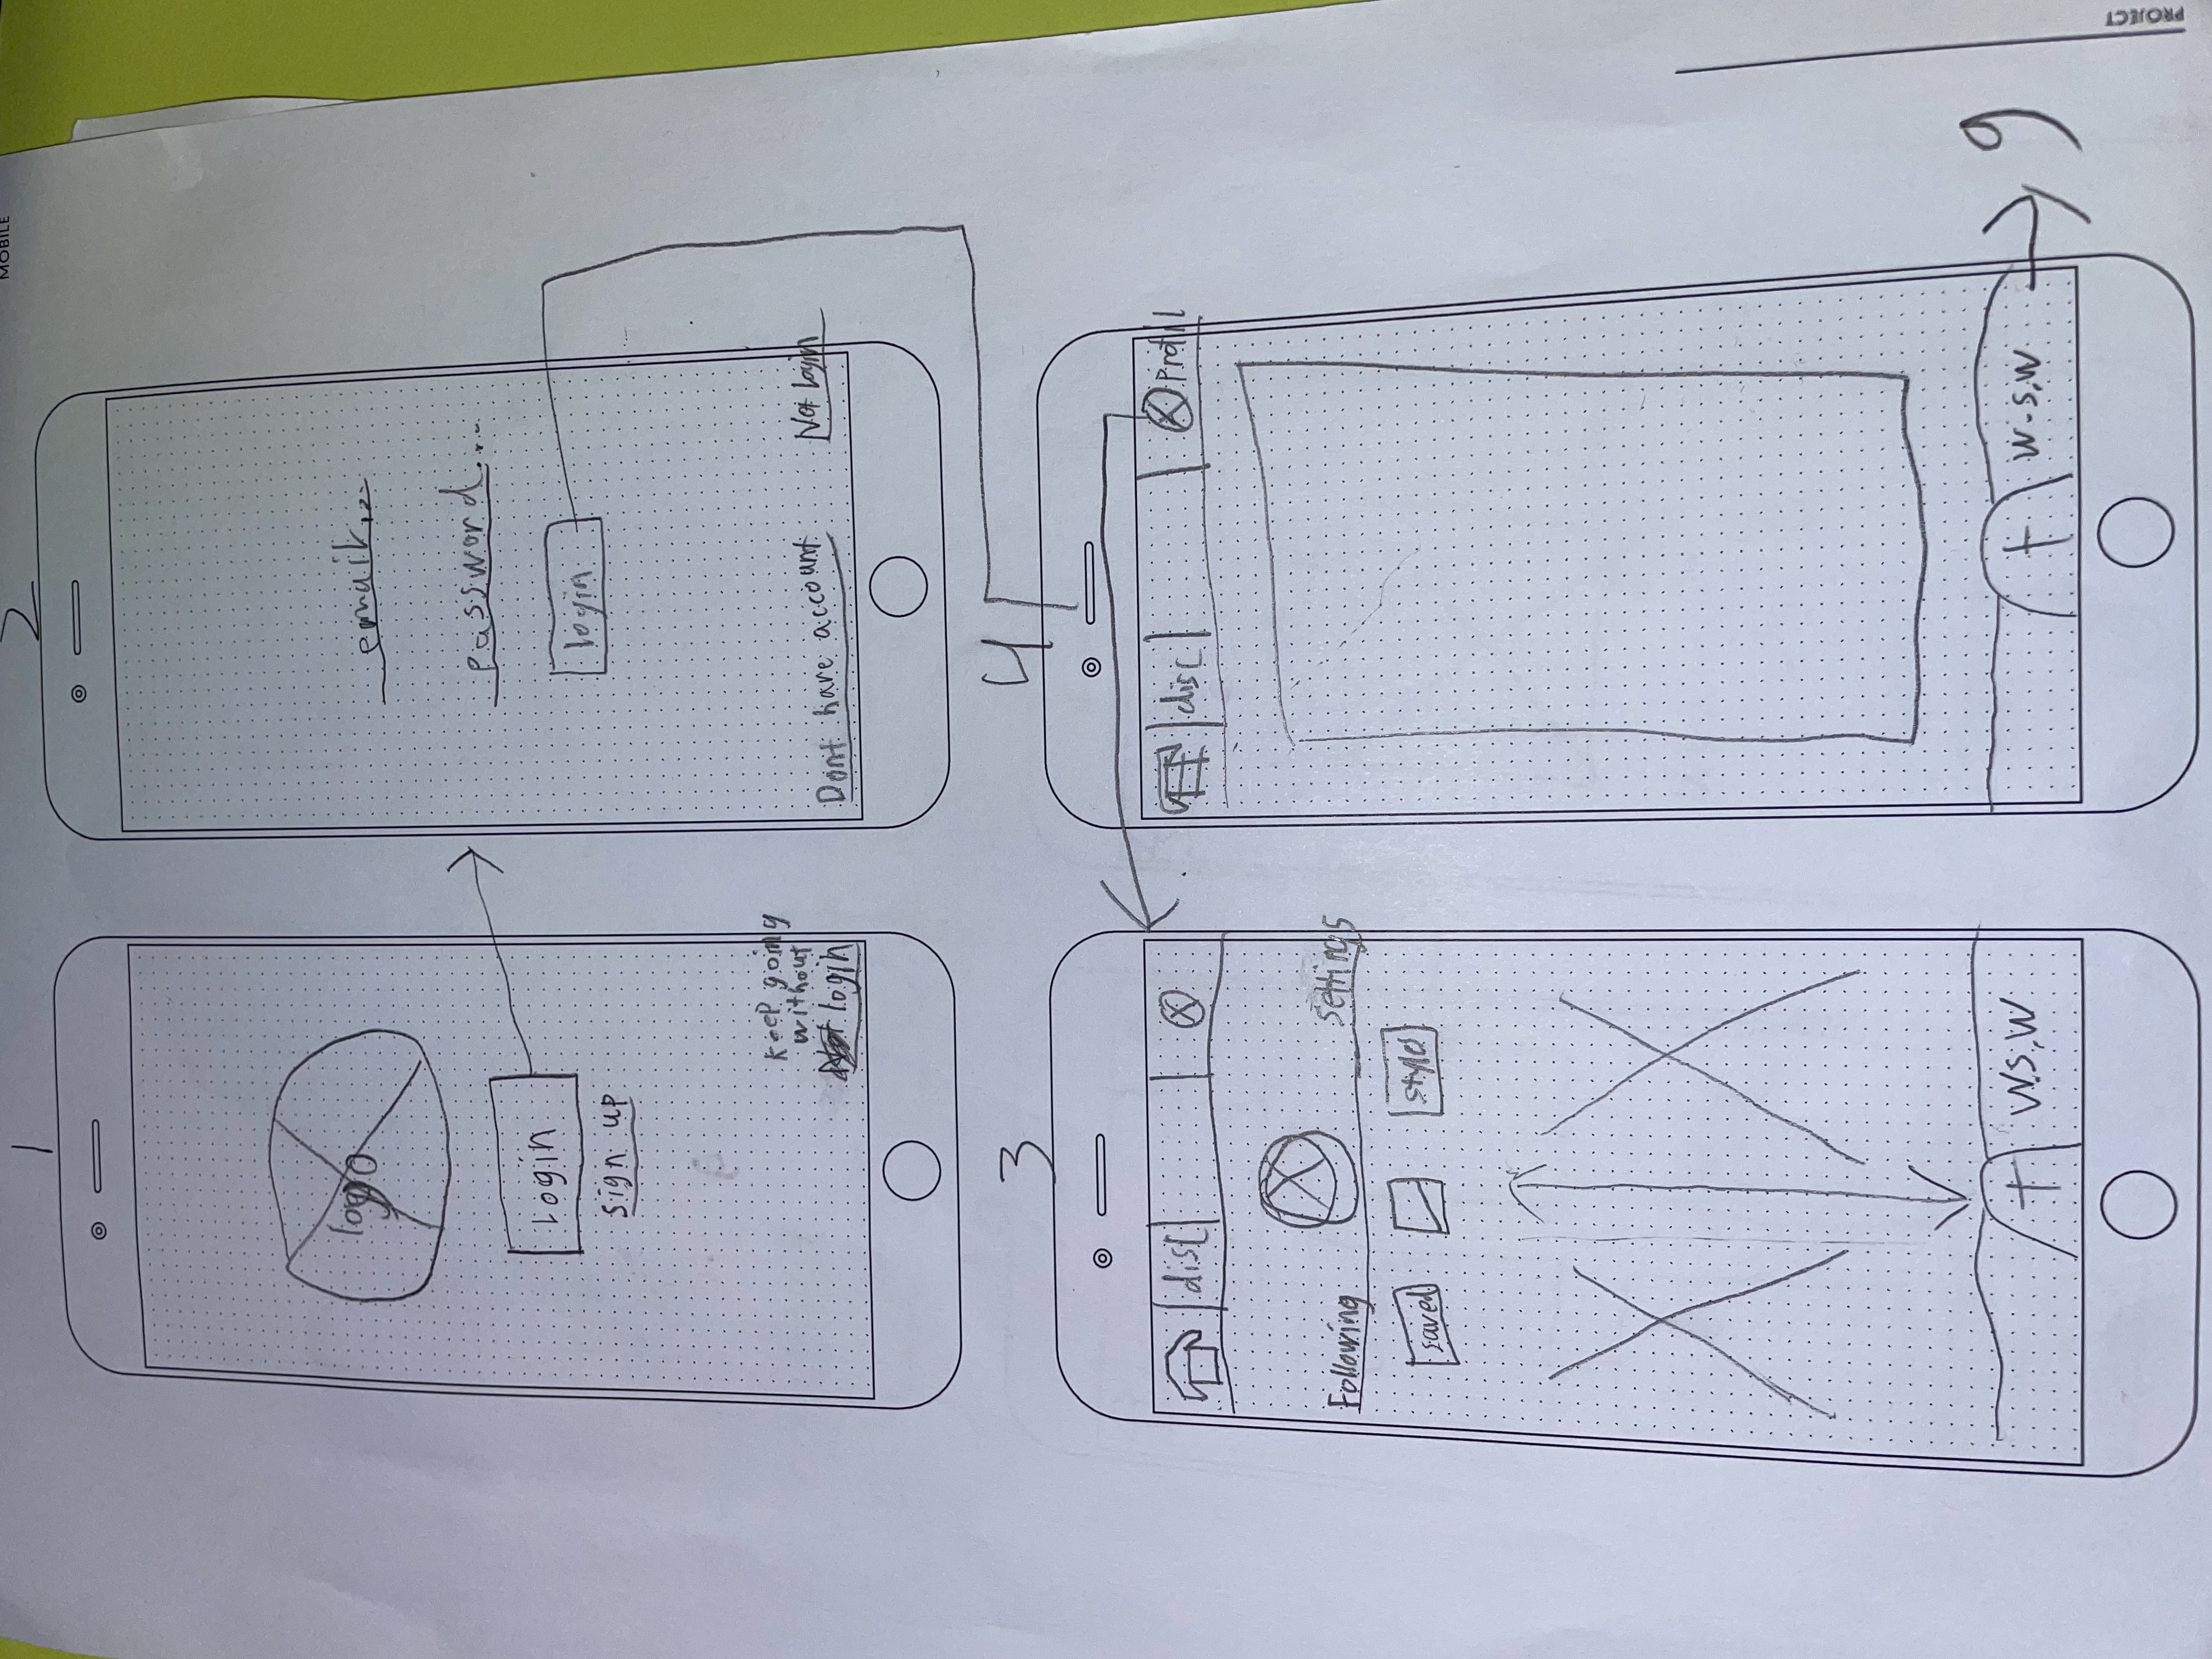 MOBILE
1
2
logo
Login
sign up
keep going
without
login
email...
password...
login
Dont have account
Not login
3
4
disc
disc
Profil
Following
Settings
saved
style
+
W.S.W
+
W.S.W
9
PROJECT